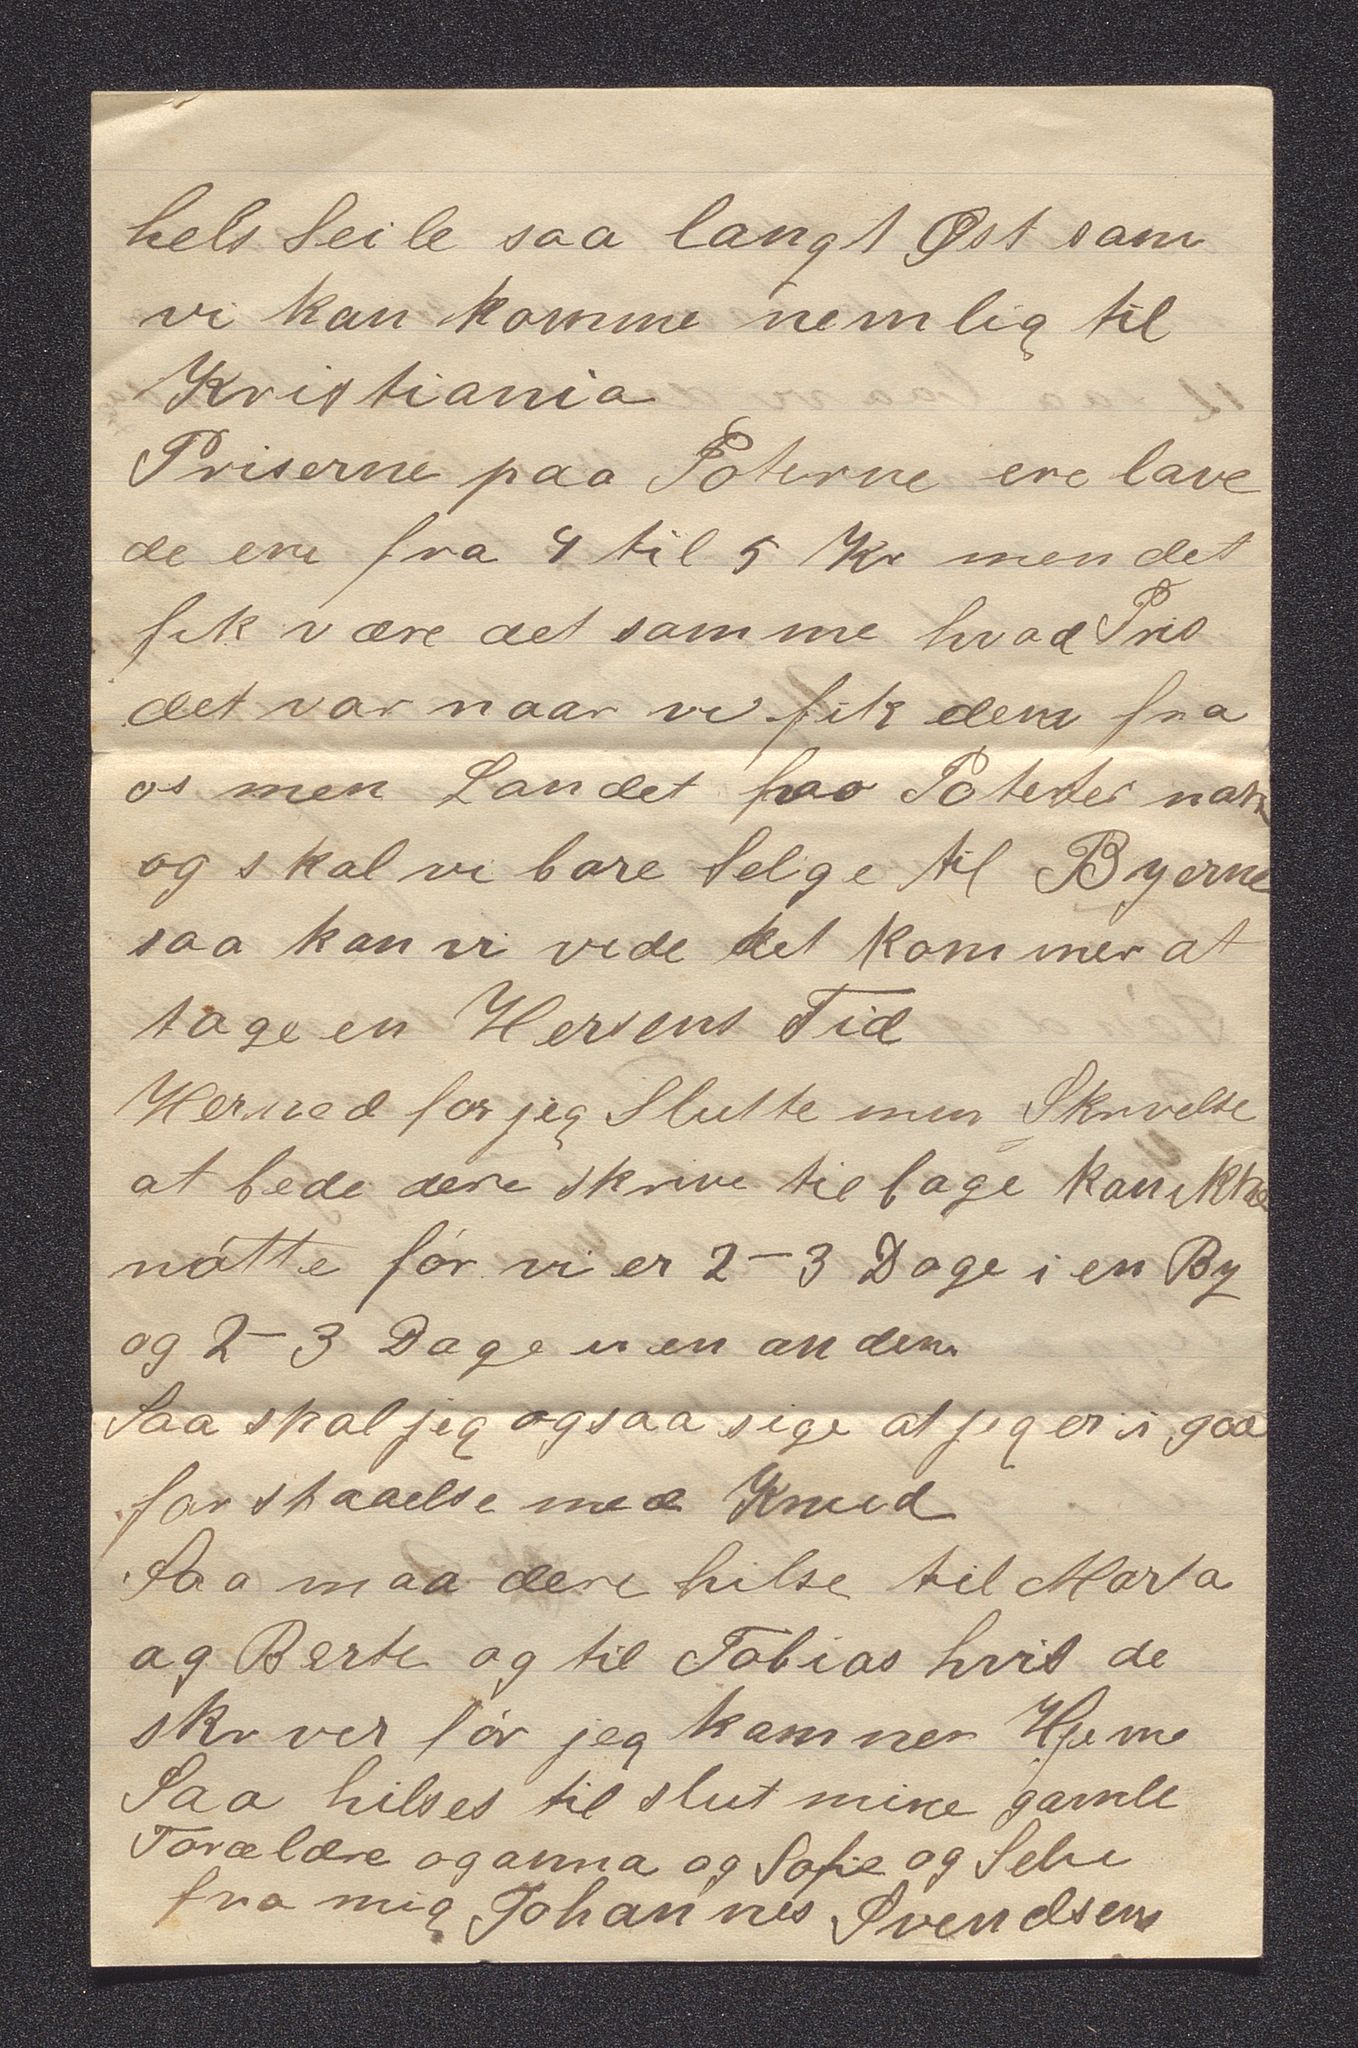 hels Seile saa langt Øst som
vi kan komme nemlig til
Kristiania
Priserne paa Poterne ere lave
de ere fra 4 til 5 Kr men det
fik være det samme hvad Pris
det var naar vi fik dem fra
os men Landet har Poteter nok
og skal vi bare Selge til Byerne
saa kan vi vide det kommer at
tage en Hersens Tid
Hermed for jeg Slutte min Skrivelse
at bede dere skrive tilbage kan ikke
nøtte før vi er 2-3 Dage i en By
og 2-3 Dage i en anden
Saa skal jeg ogsaa sige at jeg er i goa
forstaaelse med Knud
Saa maa dere hilse til Marta
og Berte og til Tobias hvis de
skrver før jeg kommer Hjeme
Saa hilses til slut mine gamle
Forældre og anna og Sofie og
fra mig Johannes Svendsen